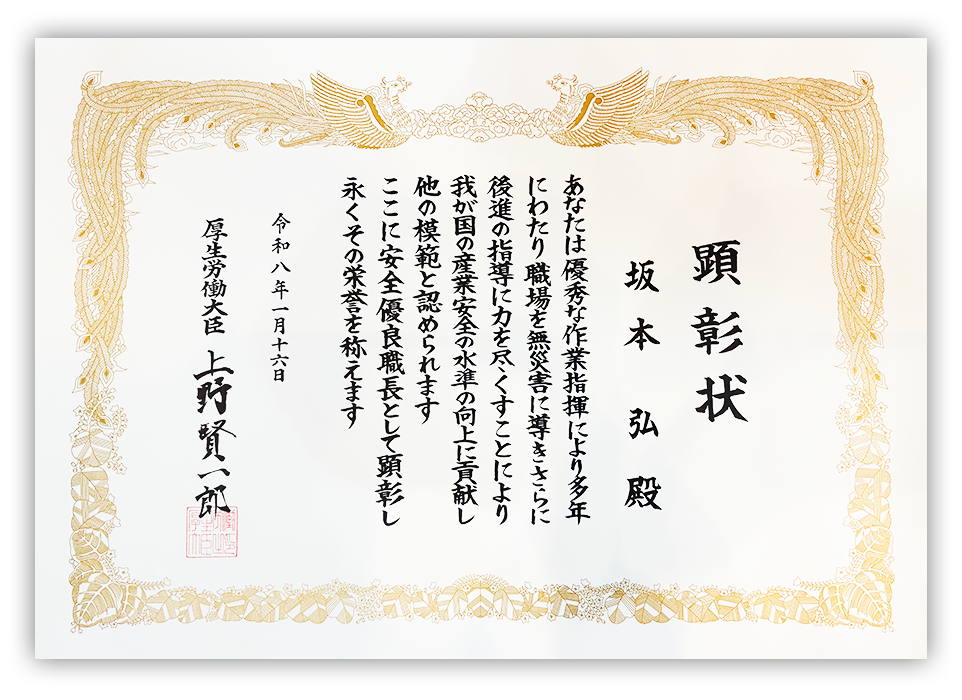 顕彰状
坂本弘殿
あなたは優秀な作業指揮により多年
にわたり職場を無災害に導きさらに
後進の指導に力を尽くすことにより
我が国の産業安全の水準の向上に貢献し
他の模範と認められます
ここに安全優良職長として顕彰し
永くその栄誉を称えます
令和八年一月十六日
厚生労働大臣 上野賢一郎